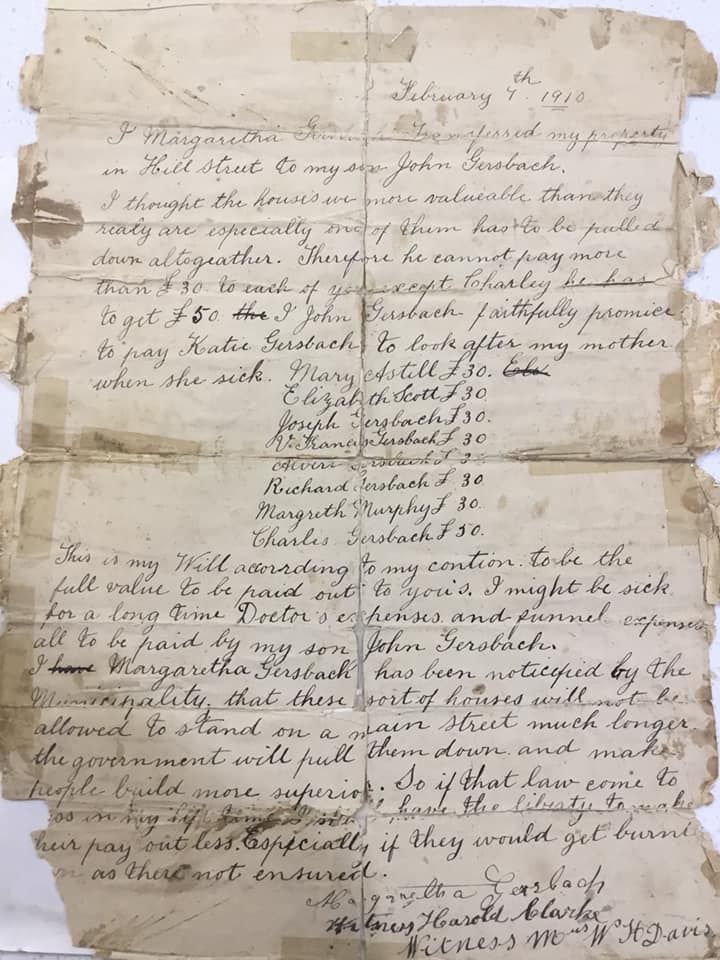 February 7th 1910
I Margaretha transferred my property
in Hill Street to my son John Gersbach.
I thought the houses we more valueable than they
realy are especially one of them has to be pulled
down altogeather. Therefore he cannot pay more
than £30. to each of you except Charley he has
to get £50. the I John Gersbach faithfully promice
to pay Katie Gersbach to look after my mother
when she sick. Mary Astill £30.
Elizabeth Scott £30
Joseph Gersbach £30.
V. Francis Gersbach £30
Gersbach £
Richard Gersbach £30
Margreth Murphy £30.
Charles Gersbach £50.
This is my Will acorrding to my contion. to be the
full value to be paid out to you's. I might be sick
for a long time Doctor's expenses and funnel expenses
all to be paid by my son John Gersbach.
I have Margaretha Gersbach has been noticefied by the
Municipality. that these sort of houses will not be
allowed to stand on a main street much longer.
the government will pull them down. and make
people build more superior. So if that law come to
in my life time I have the liberty to make
their pay out less. Especially if they would get burnt
as there not ensured.
Margaretha Gersbach
Witness Harold Clarke
Witness Mrs W H Davis